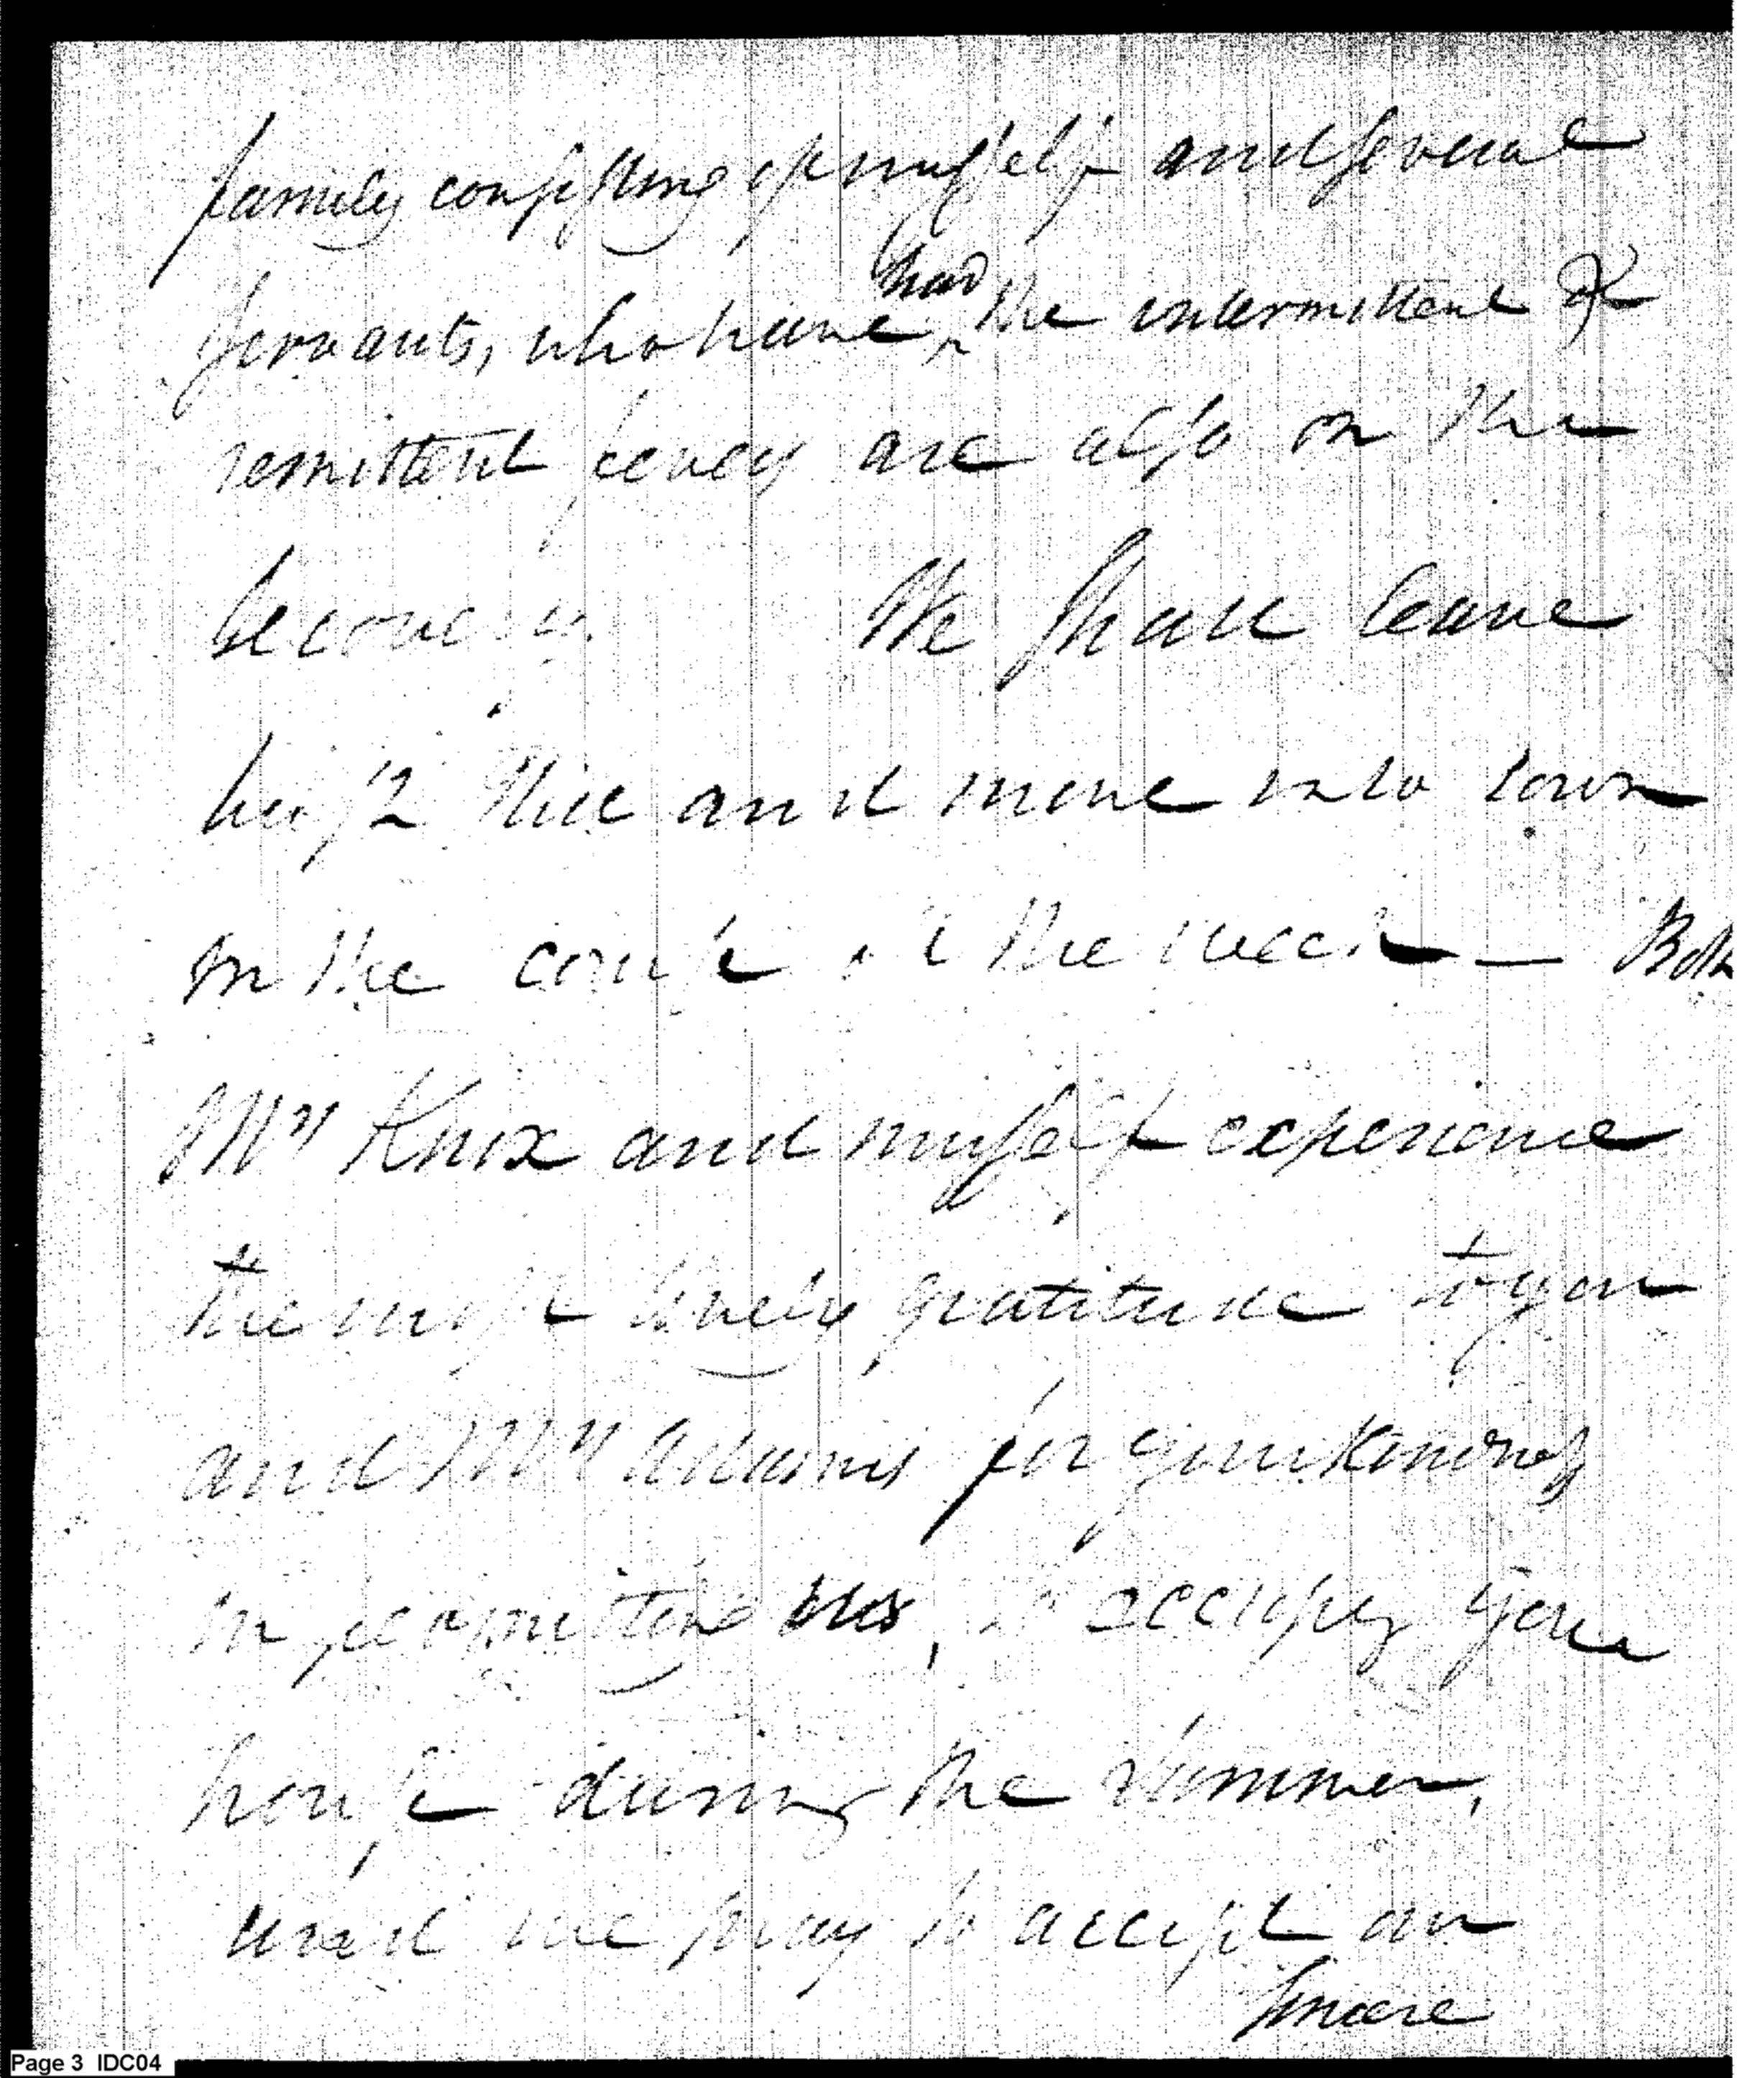 family consisting of myself and several
had
servants, who have ^ the intermittent &
remittent fevers are also on the
recovery. We shall leave
bush Hill and move into town
in the course of the week — Both
Mrs Knox and myself experience
the most lively gratitude to you
and Mrs Adams for your kindness
in permitting us, to occupy your
house during the summer,
and we pray to accept our
sincere
Page 3 IDC04